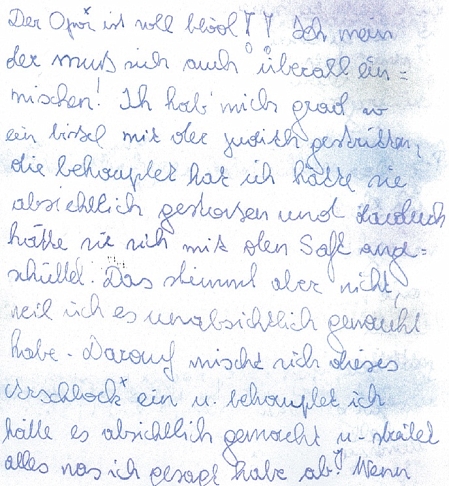 Der Opa ist voll blöd!! Ich mein
der muß sich auch überall ein=
mischen! Ich hab' mich grad so
ein bissel mit der Judith gestritten,
die behauptet hat ich hätte sie
absichtlich gestossen und dadurch
hätte sie sich mit den Saft ange=
schüttet. Das stimmt aber nicht,
weil ich es unabsichtlich gemacht
habe. Darauf mischt sich dieses
Arschloch* ein u. behauptet ich
hätte es absichtlich gemacht u. streitet
alles was ich gesagt habe ab! Wenn